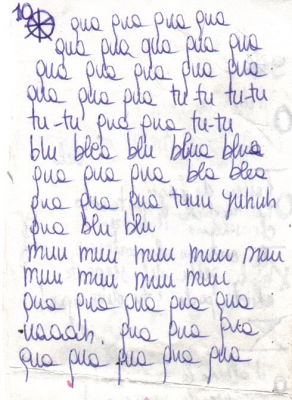 10 gua pua pua gua
gua pua qua pua pua
gua pua pua pua pua
qua pua pua tu tu tu-tu
tu-tu pua pua tu-tu
blu blea blu blua blua
pua pua pua bla blea
pua pua pua tuuu yuhuh
pua blu blu
muu muu muu muu muu
muu muu muu muu
gua pua pua pua gua
uaaah. pua pua pua
qua pua pua pua pua